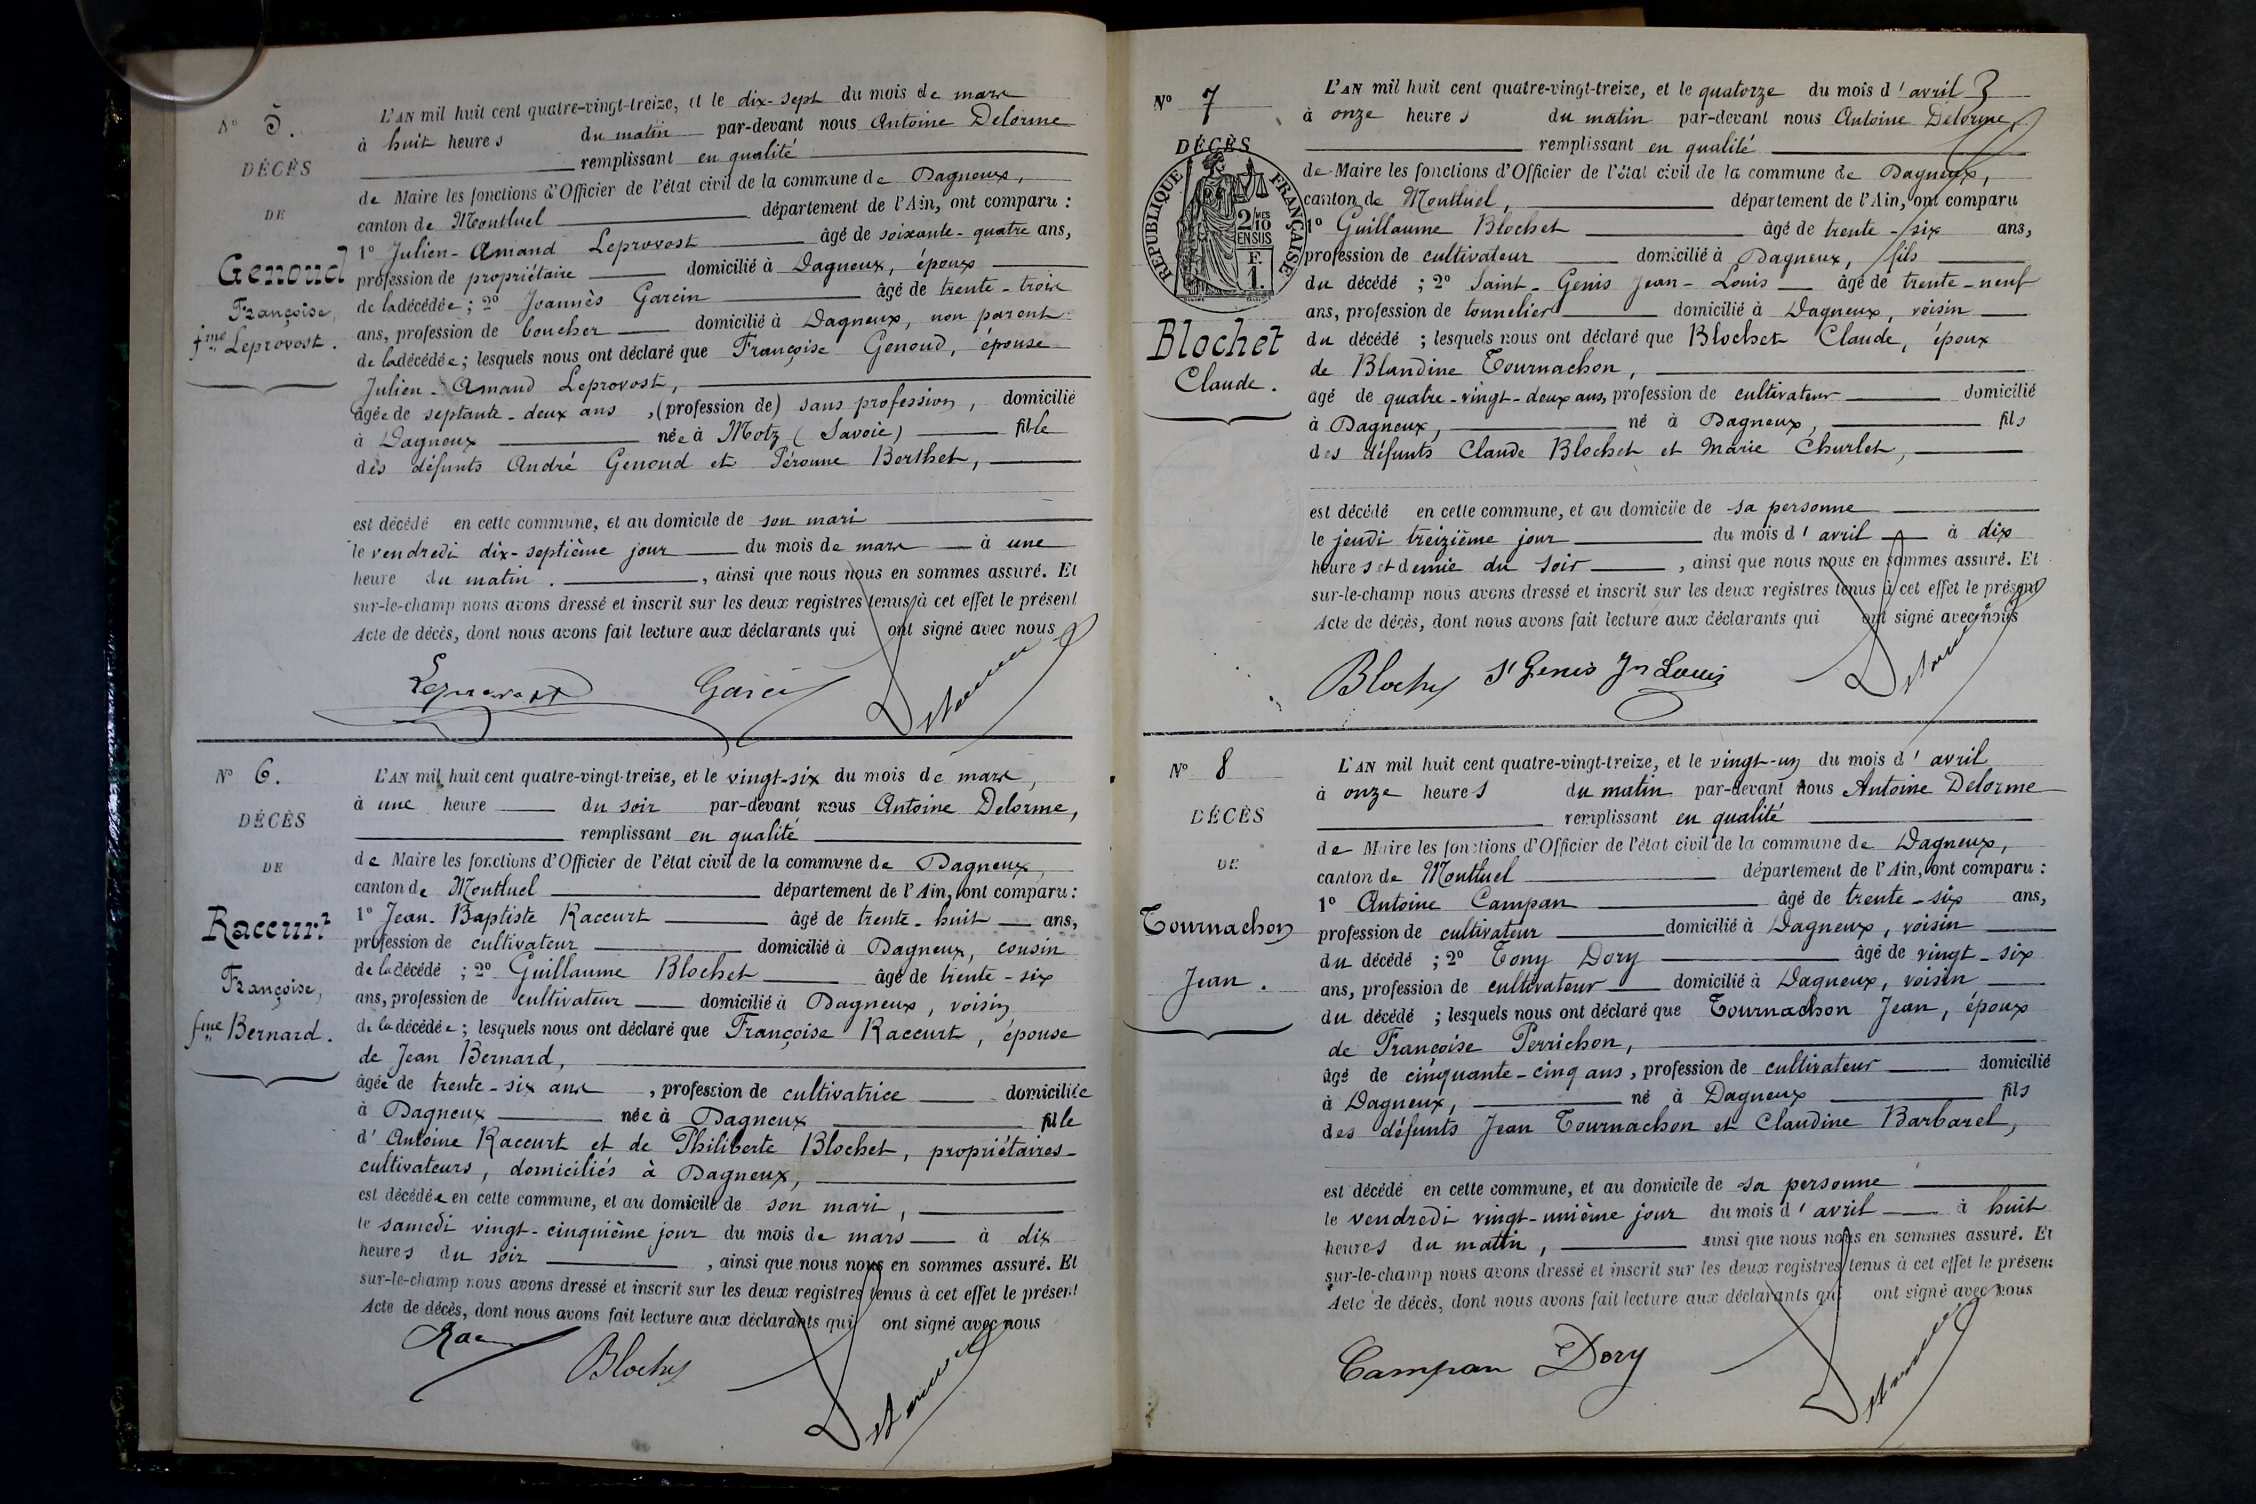 N° 5.
DÉCÈS
DE
Genoud
Françoise,
fme Leprovost.
L'AN mil huit cent quatre-vingt-treize, et le dix-sept du mois de mars
à huit heures du matin par-devant nous Antoine Delorme
remplissant en qualité
de Maire les fonctions d'Officier de l'état civil de la commune de Dagneux,
canton de Montluel département de l'Ain, ont comparu :
1° Julien-Amand Leprovost âgé de soixante-quatre ans,
profession de propriétaire domicilié à Dagneux, époux
de la décédée ; 2° Joannès Garcin âgé de trente-trois
ans, profession de boucher domicilié à Dagneux, non parent
de la décédée ; lesquels nous ont déclaré que Françoise Genoud, épouse
Julien-Amand Leprovost,
âgée de septante-deux ans, (profession de) sans profession, domicilié
à Dagneux née à Motz (Savoie) fille
des défunts André Genoud et Péronne Berthet,
est décédé en cette commune, et au domicile de son mari
le vendredi dix-septième jour du mois de mars à une
heure du matin. , ainsi que nous nous en sommes assuré. Et
sur-le-champ nous avons dressé et inscrit sur les deux registres tenus à cet effet le présent
Acte de décès, dont nous avons fait lecture aux déclarants qui ont signé avec nous
Leprovost Garcin Delorme
N° 6.
DÉCÈS
DE
Raccurt
Françoise,
fme Bernard.
L'AN mil huit cent quatre-vingt-treize, et le vingt-six du mois de mars,
à une heure du soir par-devant nous Antoine Delorme,
remplissant en qualité
de Maire les fonctions d'Officier de l'état civil de la commune de Dagneux,
canton de Montluel département de l'Ain, ont comparu :
1° Jean-Baptiste Raccurt âgé de trente-huit ans,
profession de cultivateur domicilié à Dagneux, cousin
de la décédé ; 2° Guillaume Blochet âgé de trente-six
ans, profession de cultivateur domicilié à Dagneux, voisin
de la décédée ; lesquels nous ont déclaré que Françoise Raccurt, épouse
de Jean Bernard,
âgée de trente-six ans, profession de cultivatrice domiciliée
à Dagneux née à Dagneux fille
d'Antoine Raccurt et de Philiberte Blochet, propriétaires-
cultivateurs, domiciliés à Dagneux,
est décédée en cette commune, et au domicile de son mari,
le samedi vingt-cinquième jour du mois de mars à dix
heures du soir , ainsi que nous nous en sommes assuré. Et
sur-le-champ nous avons dressé et inscrit sur les deux registres tenus à cet effet le présent
Acte de décès, dont nous avons fait lecture aux déclarants qui ont signé avec nous
Blochet Delorme
N° 7
DÉCÈS
RÉPUBLIQUE FRANÇAISE
2 MES
10
EN SUS
F.
1.
Blochet
Claude.
3
L'AN mil huit cent quatre-vingt-treize, et le quatorze du mois d'avril
à onze heures du matin par-devant nous Antoine Delorme,
remplissant en qualité
de Maire les fonctions d'Officier de l'état civil de la commune de Dagneux,
canton de Montluel, département de l'Ain, ont comparu
1° Guillaume Blochet âgé de trente-six ans,
profession de cultivateur domicilié à Dagneux, fils
du décédé ; 2° Saint-Genis Jean-Louis âgé de trente-neuf
ans, profession de tonnelier domicilié à Dagneux, voisin
du décédé ; lesquels nous ont déclaré que Blochet Claude, époux
de Blandine Tournachon,
âgé de quatre-vingt-deux ans, profession de cultivateur domicilié
à Dagneux, né à Dagneux, fils
des défunts Claude Blochet et Marie Churlet,
est décédé en cette commune, et au domicile de sa personne
le jeudi treizième jour du mois d'avril à dix
heures et demie du soir , ainsi que nous nous en sommes assuré. Et
sur-le-champ nous avons dressé et inscrit sur les deux registres tenus à cet effet le présent
Acte de décès, dont nous avons fait lecture aux déclarants qui ont signé avec nous
Blochet St Genis Jn Louis Delorme
N° 8
DÉCÈS
DE
Tournachon
Jean.
L'AN mil huit cent quatre-vingt-treize, et le vingt-un du mois d'avril
à onze heures du matin par-devant nous Antoine Delorme
remplissant en qualité
de Maire les fonctions d'Officier de l'état civil de la commune de Dagneux,
canton de Montluel département de l'Ain, ont comparu :
1° Antoine Campan âgé de trente-six ans,
profession de cultivateur domicilié à Dagneux, voisin
du décédé ; 2° Tony Dory âgé de vingt-six
ans, profession de cultivateur domicilié à Dagneux, voisin
du décédé ; lesquels nous ont déclaré que Tournachon Jean, époux
de Françoise Perrichon,
âgé de cinquante-cinq ans, profession de cultivateur domicilié
à Dagneux, né à Dagneux fils
des défunts Jean Tournachon et Claudine Barbaret,
est décédé en cette commune, et au domicile de sa personne
le vendredi vingt-unième jour du mois d'avril à huit
heures du matin, ainsi que nous nous en sommes assuré. Et
sur-le-champ nous avons dressé et inscrit sur les deux registres tenus à cet effet le présent
Acte de décès, dont nous avons fait lecture aux déclarants qui ont signé avec nous
Campan Dory Delorme